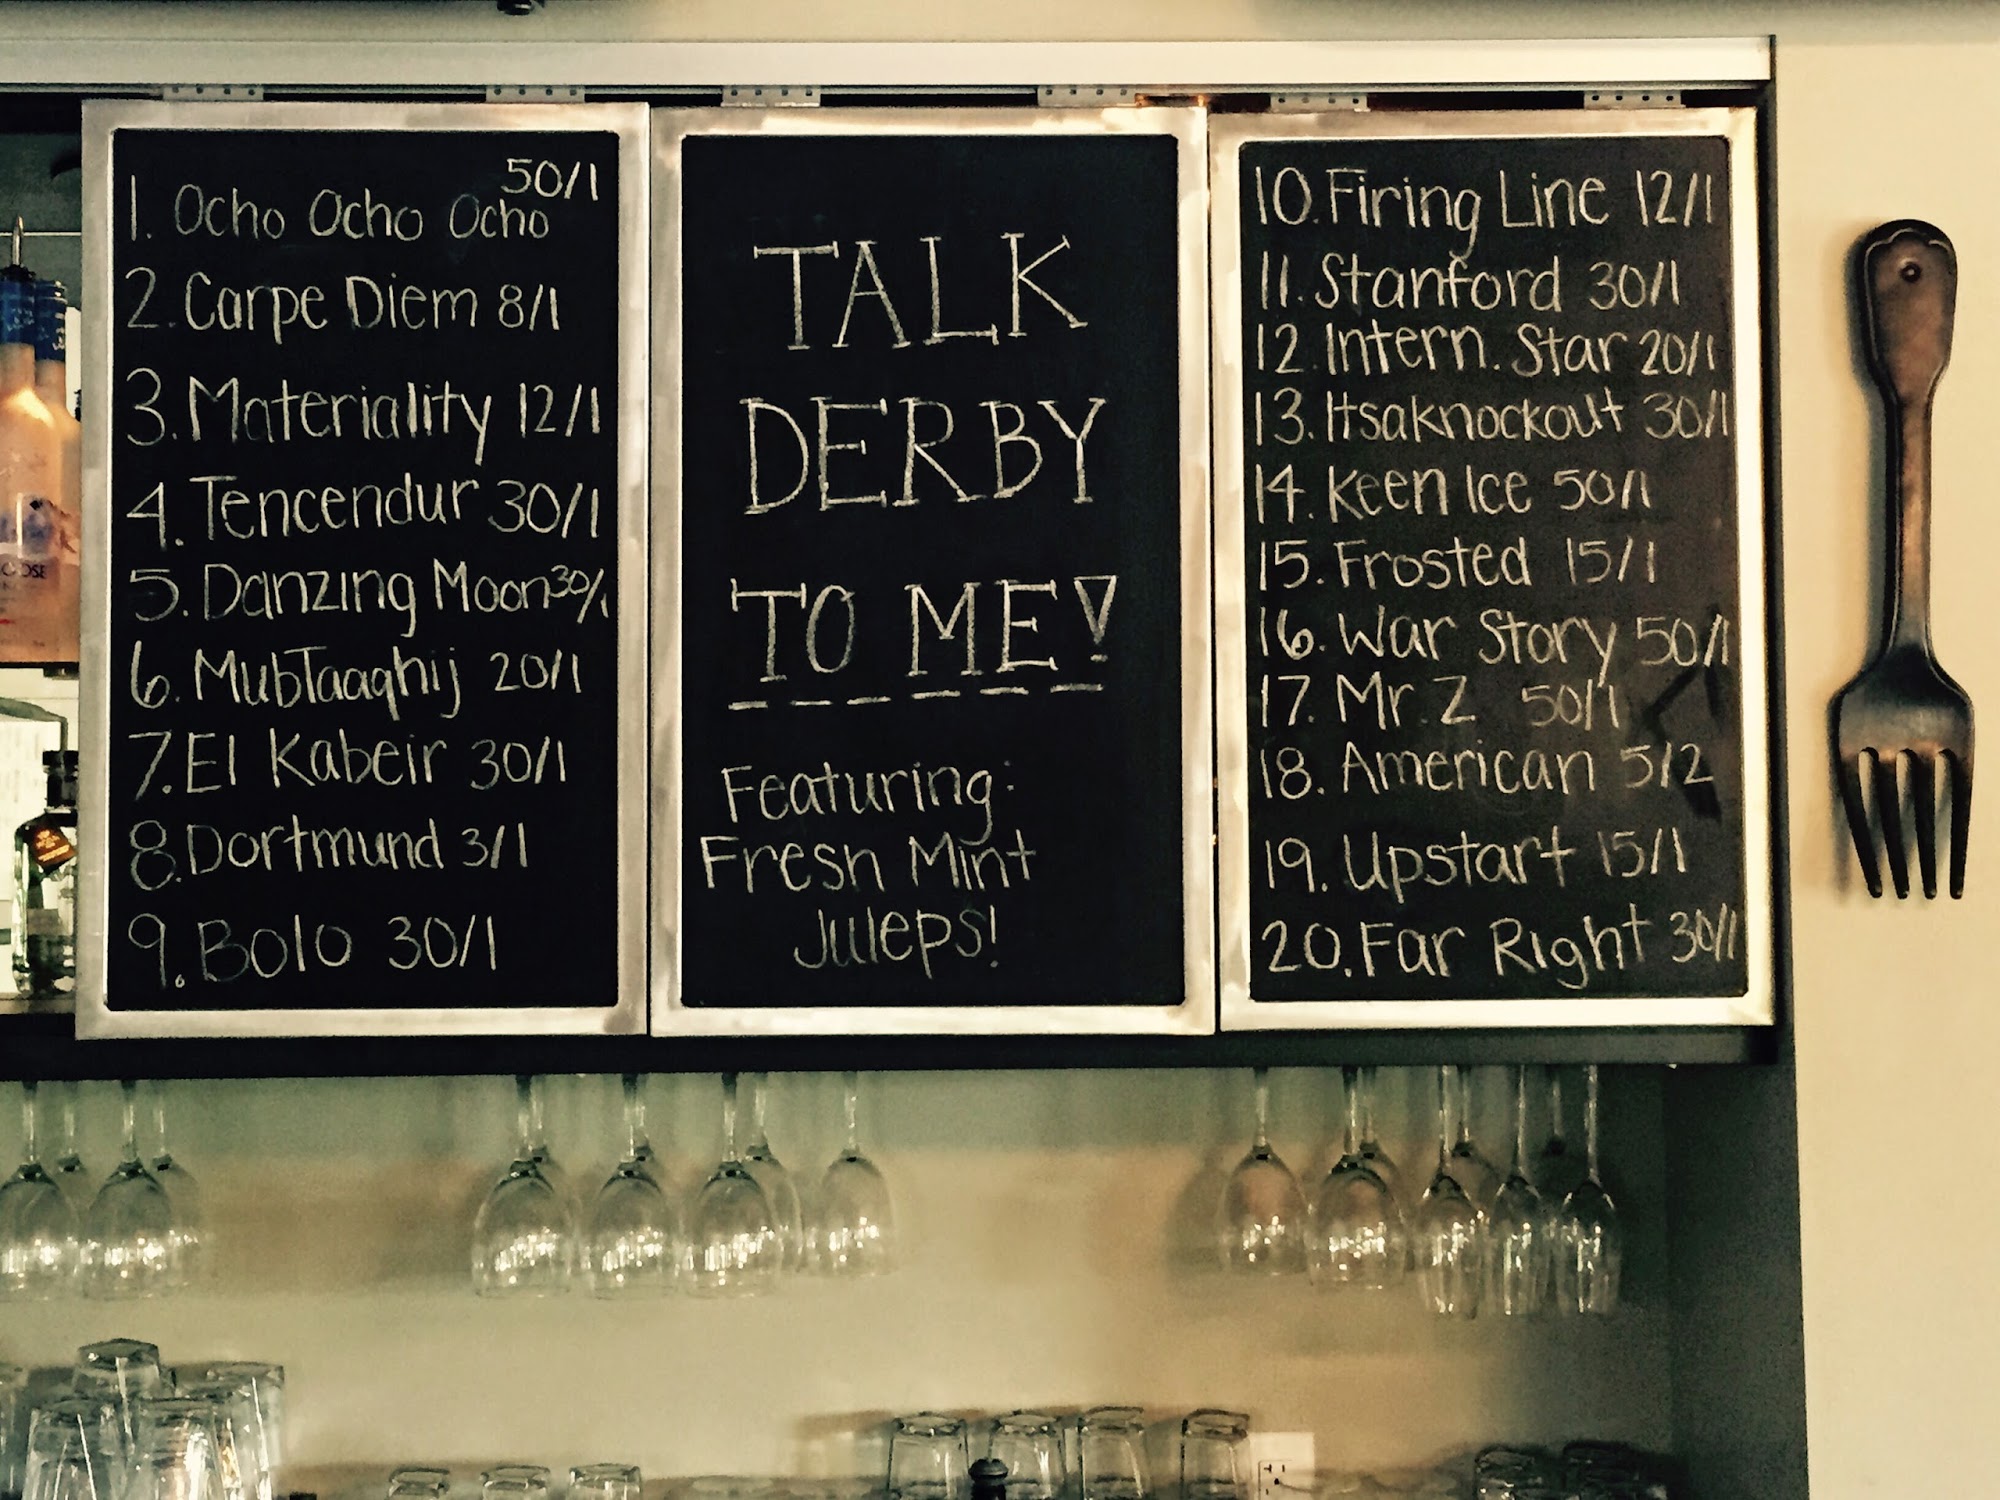 50/1
1. Ocho Ocho Ocho
2. Carpe Diem 8/1
3. Materiality 12/1
4. Tencendur 30/1
5. Danzing Moon 30/1
6. MubTaaqhij 20/1
7. El Kabeir 30/1
8. Dortmund 3/1
9. Bolo 30/1
TALK
DERBY
TO ME!
Featuring:
Fresh Mint
Juleps!
10. Firing Line 12/1
11. Stanford 30/1
12. Intern. Star 20/1
13. Itsaknockout 30/1
14. Keen Ice 50/1
15. Frosted 15/1
16. War Story 50/1
17. Mr. Z 50/1
18. American 5/2
19. Upstart 15/1
20. Far Right 30/1